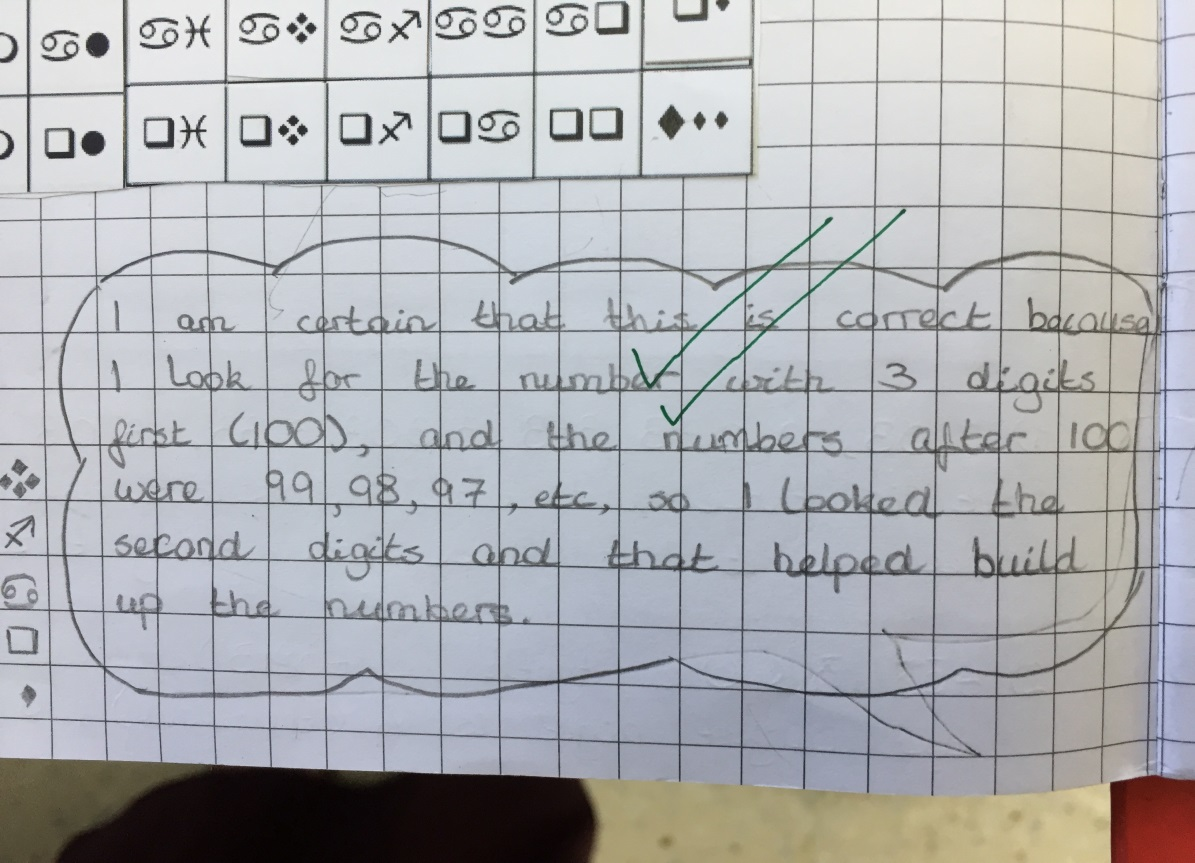 I am certain that this is correct because
I look for the number with 3 digits
first (100), and the numbers after 100
were 99, 98, 97, etc, so I looked the
second digits and that helped build
up the numbers.